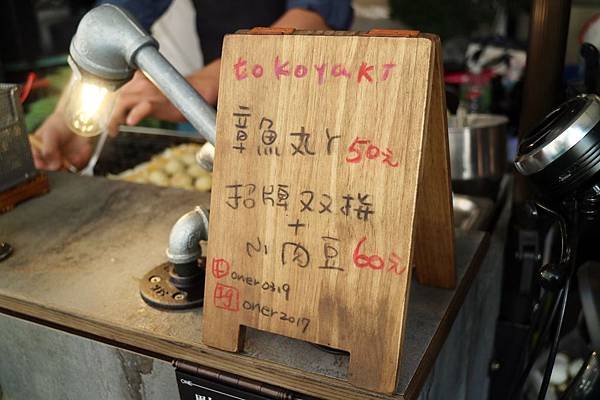 tokoyaki
章魚丸ㄚ 50元
招牌双拼
+
小肉豆 60元
oner0319
ig oner2017